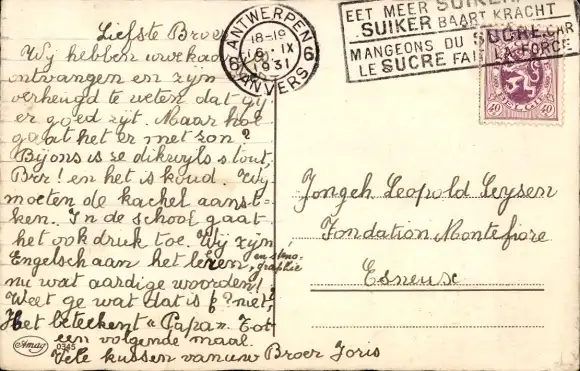 Liefste Broer
Wij hebben uwe kaart
ontvangen en zijn
verheugd te weten dat gij
er goed zijt. Maar hoe
gaat het er met zon?
Bij ons is ze dikwijls stout,
Brr! en het is koud. Wij
moeten de kachel aanst=
ken. In de school gaat
het ook druk toe. Wij zijn
Engelsch aan het leren, en steno-
graphie
nu wat aardige woorden!
Weet ge wat dat is ? niet?
Het beteekent "Papa". Tot
een volgende maal.
Vele kussen van uw Broer Joris
Amag
0345
ANTWERPEN
18-19
6 6
IX
1931
ANVERS
EET MEER SUIKER
SUIKER BAART KRACHT
MANGEONS DU SUCRE, CAR
LE SUCRE FAIT LA FORCE
40 BELGIE 40
Jongeh Leopold Leysen
Fondation Montefiore
Esneux